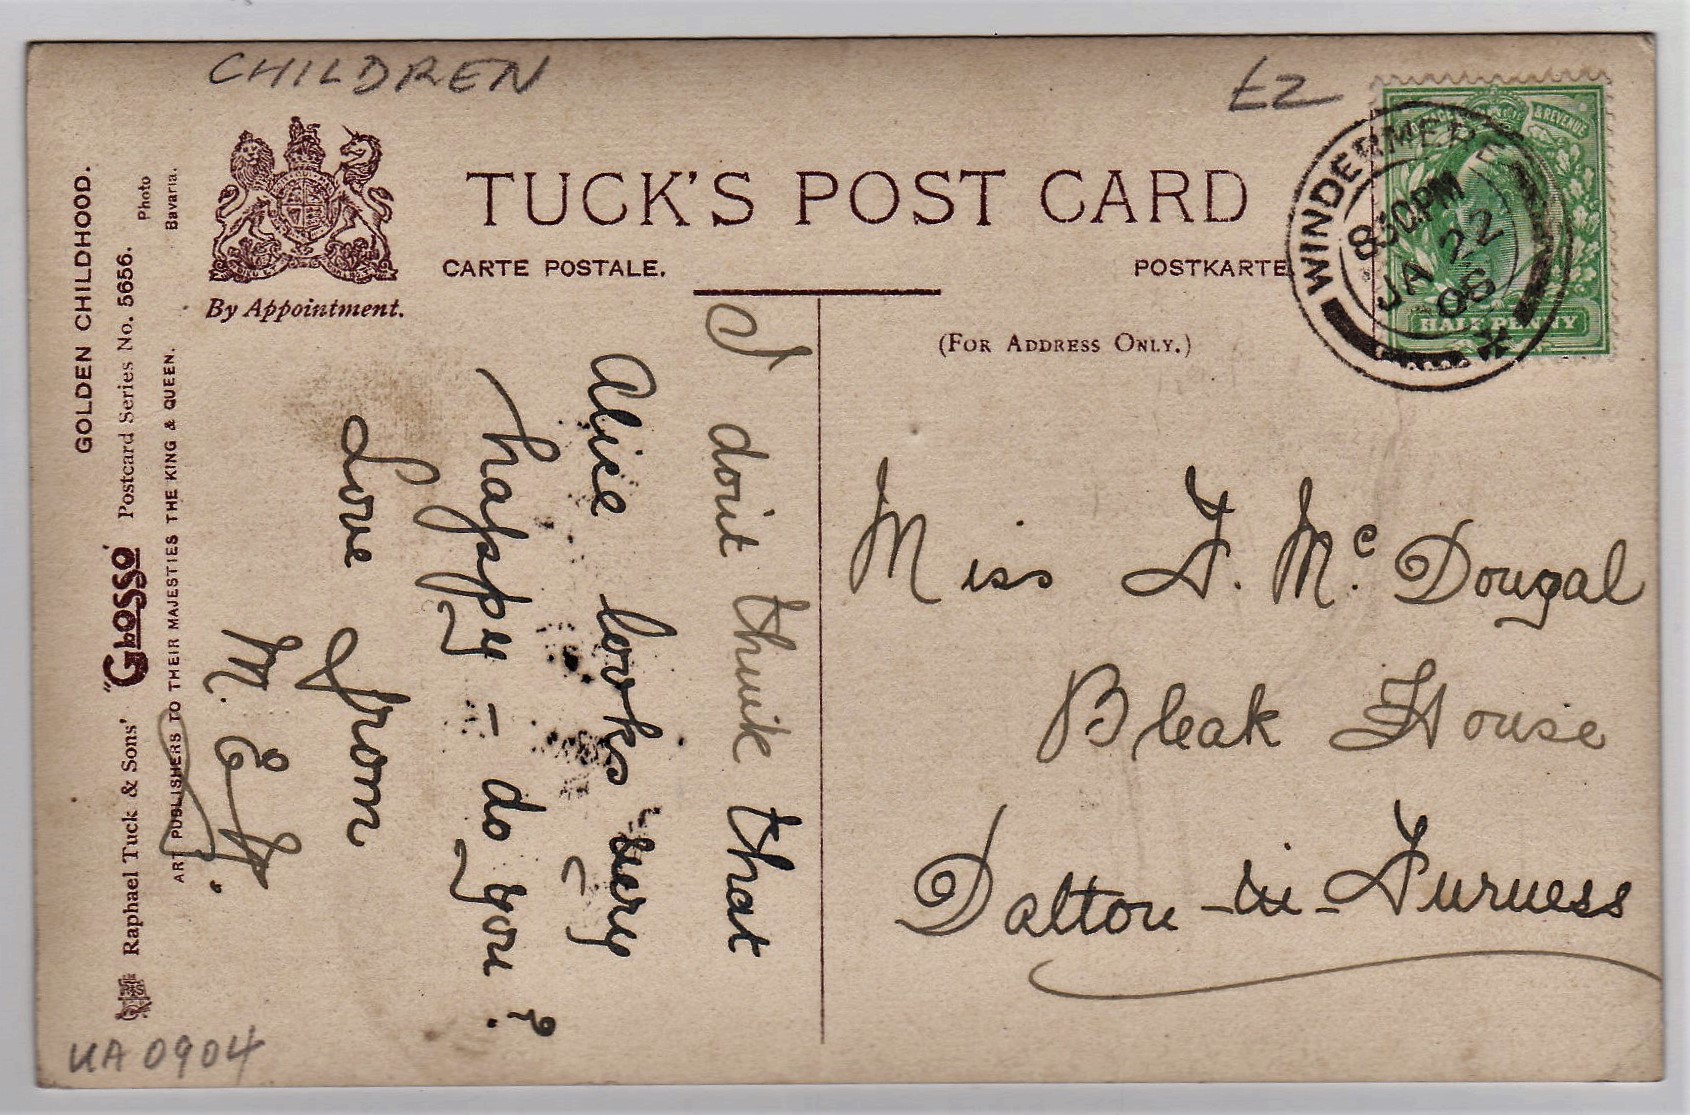 CHILDREN
£2
TUCK'S POST CARD
CARTE POSTALE.
POSTKARTE
By Appointment.
(FOR ADDRESS ONLY.)
& REVENUE
HALFPENNY
WINDERMERE
8.30PM
JA 22
06
GOLDEN CHILDHOOD.
Raphael Tuck & Sons' "GLOSSO" Postcard Series No. 5656.
Photo
Bavaria.
ART PUBLISHERS TO THEIR MAJESTIES THE KING & QUEEN.
I don't think that
Alice looks very
happy – do you?
Love from
M. E. H.
Miss F. Mc. Dougal
Bleak House
Dalton-in-Furness
UA 0904